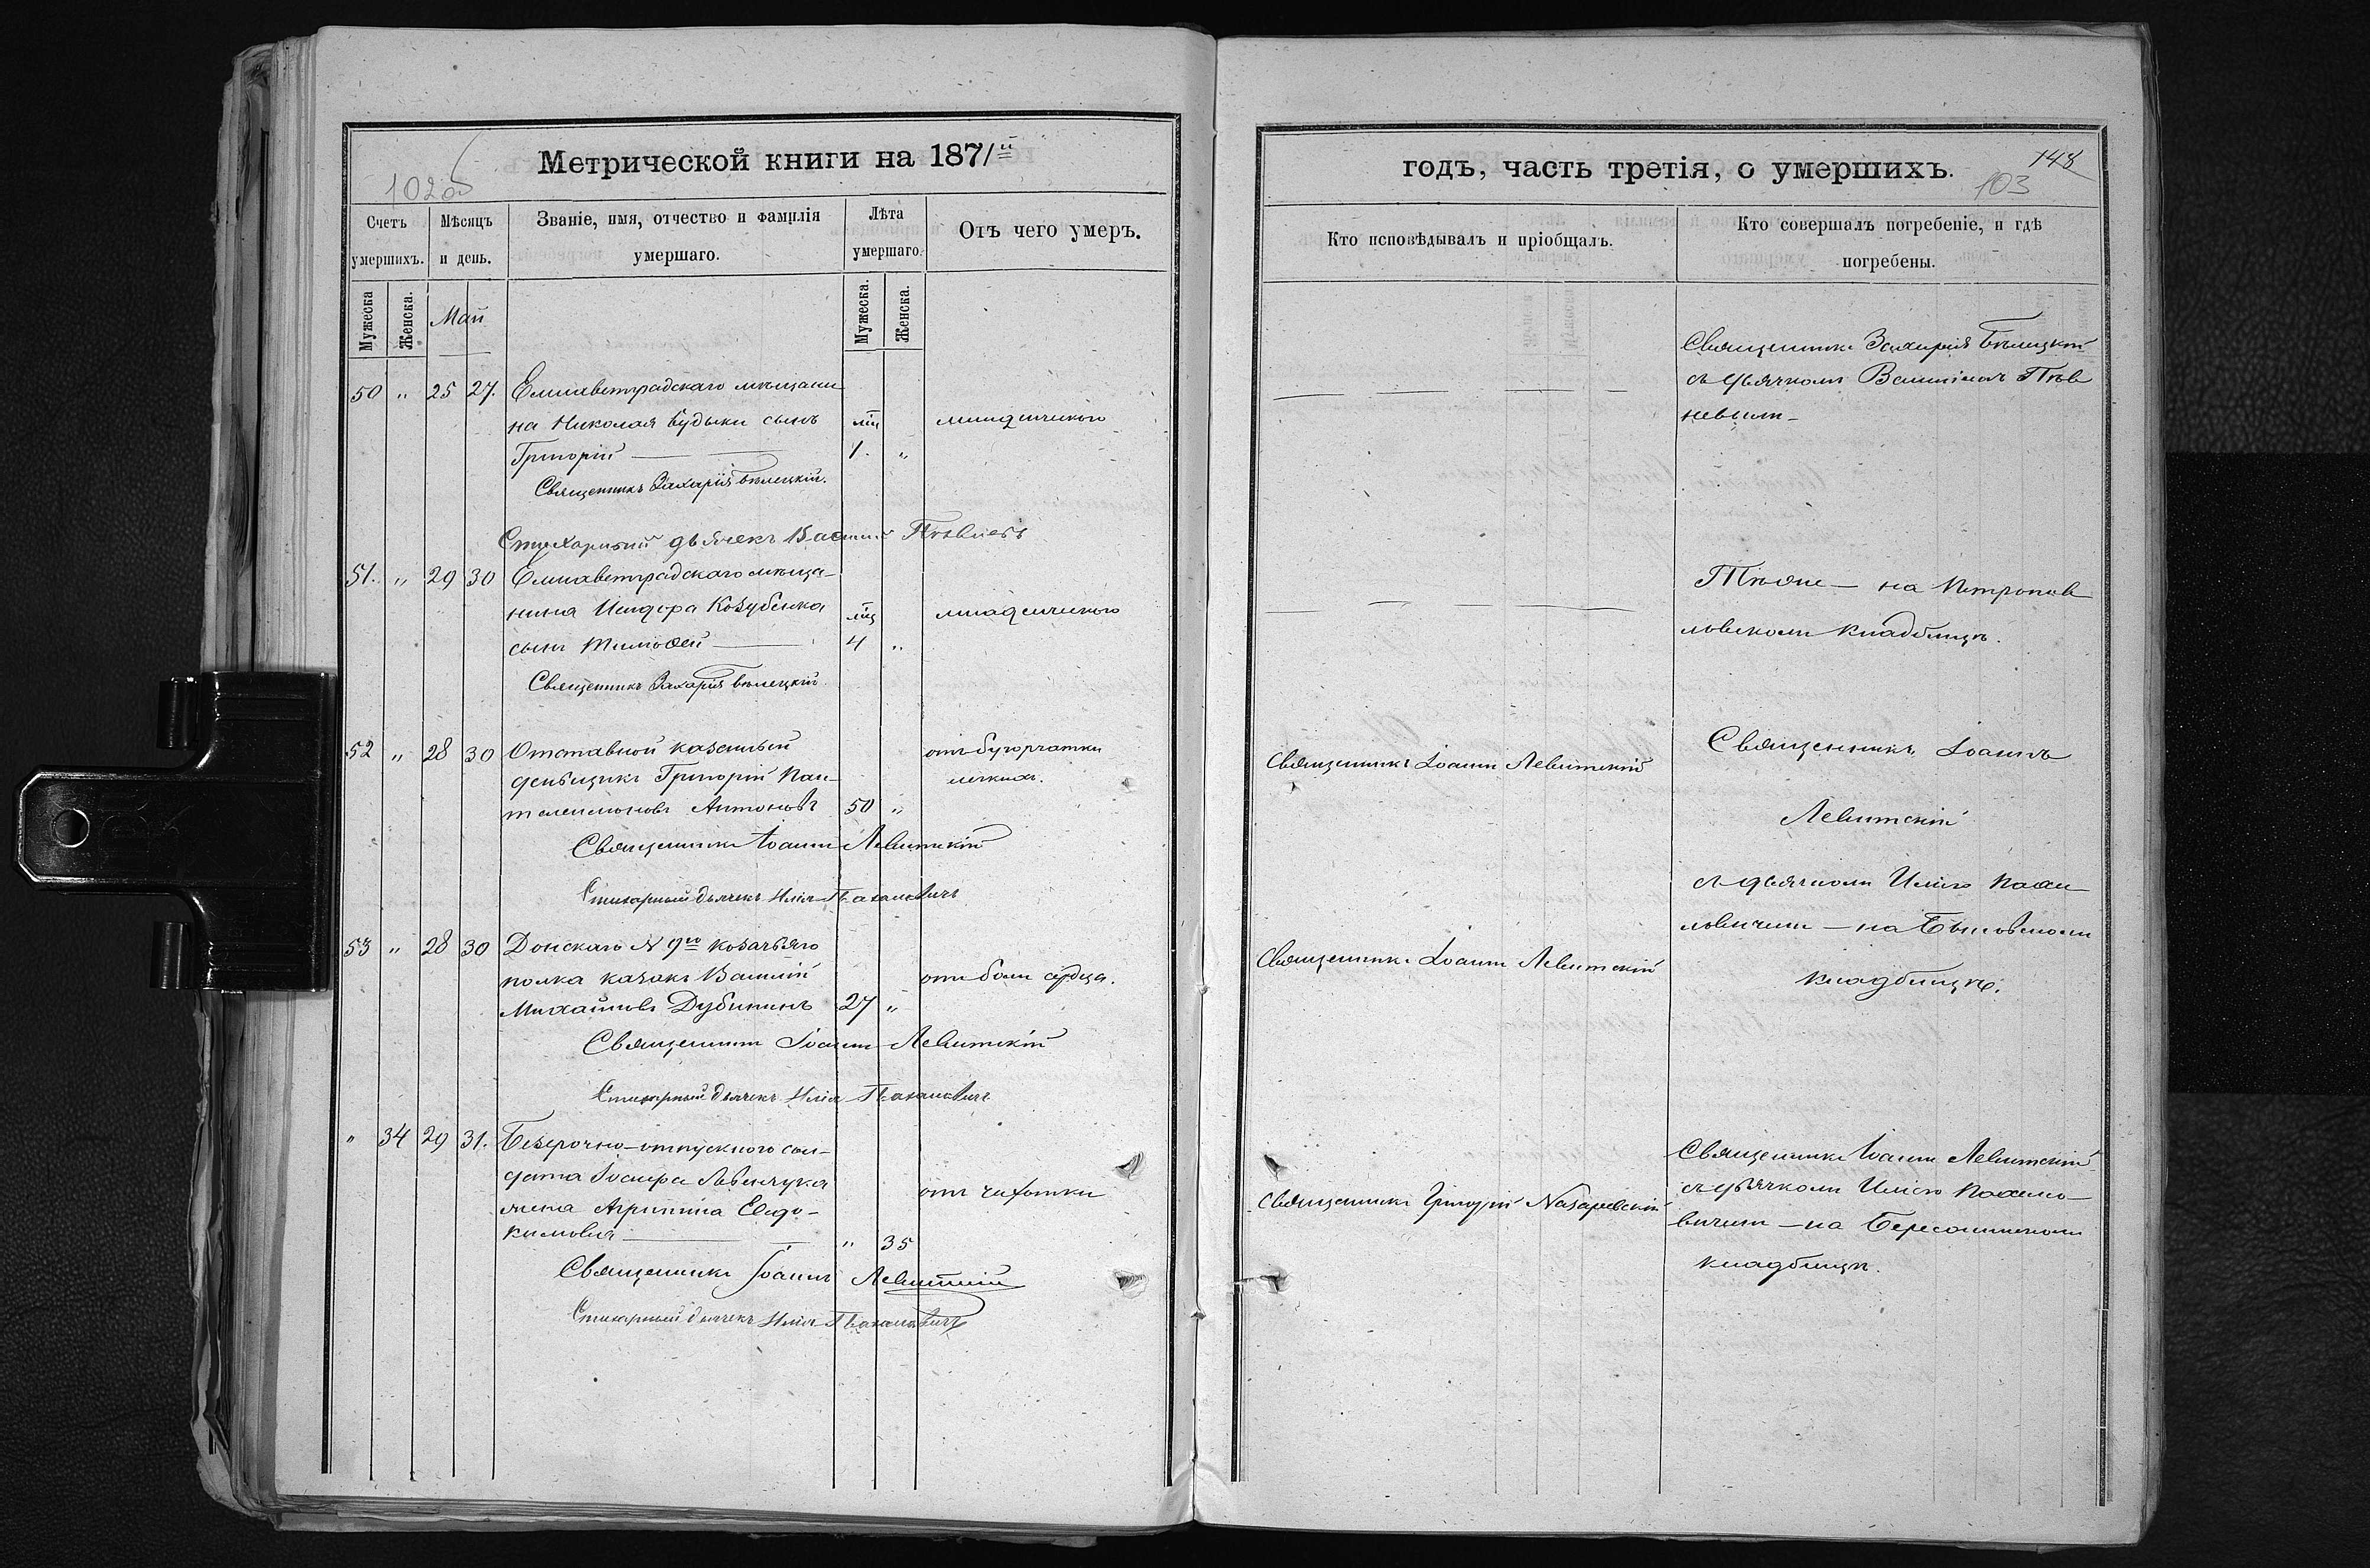 Метрической книги на 1871й
102об
Счетъ умершихъ.
Мѣсяцъ и день.
Званіе, имя, отчество и фамилія умершаго.
Лѣта умершаго.
Отъ чего умеръ.
Мужеска
Женска.
Май
Мужеска.
Женска.
50 " 25 27. Елисаветградскаго мѣщани
на Николая Будыки сынъ мц младенческаго
Григорій 1. "
Священникъ Захарія Бѣлецкій.
Стихарный дьячекъ Василій Пѣвневъ
51. " 29 30 Елисаветградскаго мѣща-
нина Исидора Козубенка мц младенческаго
сынъ Тимоѳей 4 "
Священникъ Захарія Бѣлецкій
52 " 28 30 Отставной казенный отъ бугорчатки
деньщикъ Григорій Пан- легкихъ.
телеимоновъ Антоновъ 50 "
Священникъ Іоаннъ Левитскій
Стихарный дьячекъ Илія
53 " 28 30 Донскаго N 9го козачьяго
полка казакъ Василій отъ боли сердца.
Михайловъ Дубининъ 27 "
Священникъ Іоаннъ Левитскій
Стихарный дьячекъ Илія
" 34 29 31. Безсрочно-отпускного сол-
дата Іосифа Левчука отъ чахотки
жена Агрипина Евдо-
кимовна " 35
Священникъ Іоаннъ Левитскій
Стихарный дьячекъ Илія
годъ, часть третія, о умершихъ.
148
103
Кто исповѣдывалъ и пріобщалъ.
Кто совершалъ погребеніе, и гдѣ погребены.
Священникъ Захарія Бѣлецкій
съ дьячкомъ Василіемъ Пѣв
невымъ
Тѣже — на Петропав
ловскомъ кладбищѣ.
Священникъ Іоаннъ Левитскій
Священникъ Іоаннъ
Левитскій
съ дьячкомъ Иліею
на Быковскомъ
Священникъ Іоаннъ Левитскій
кладбищѣ.
Священникъ Іоаннъ Левитскій
съ дьячкомъ Иліею
Священникъ Григорій Назаревскій
вичемъ — на
кладбищѣ.